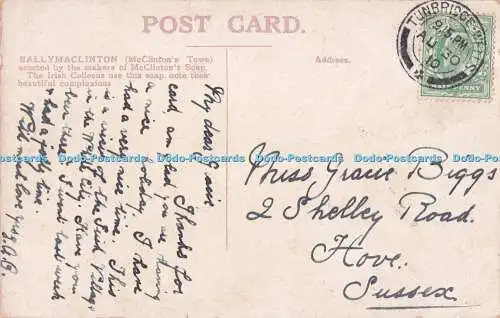 POST CARD.
BALLYMACLINTON (McClinton's Town)
erected by the makers of McClinton's Soap.
The Irish Colleens use this soap, note their
beautiful complexions
Address.
TUNBRIDGE WELLS
AU 10
10
HALFPENNY
My dear Gracie
Thanks for
card am glad you are having
a nice holiday. I have
had a very nice time. This
is a view of the Irish Village
in the White City. Have you
been there. I went last week
& had a jolly time.
With much love yrs
Miss Gracie Biggs
2 Shelley Road.
Hove.
Sussex.
Dodo-Postcards Dodo-Postcards Dodo-Postcards Dodo-Postcards Dodo-Postcards Dodo-Postcards